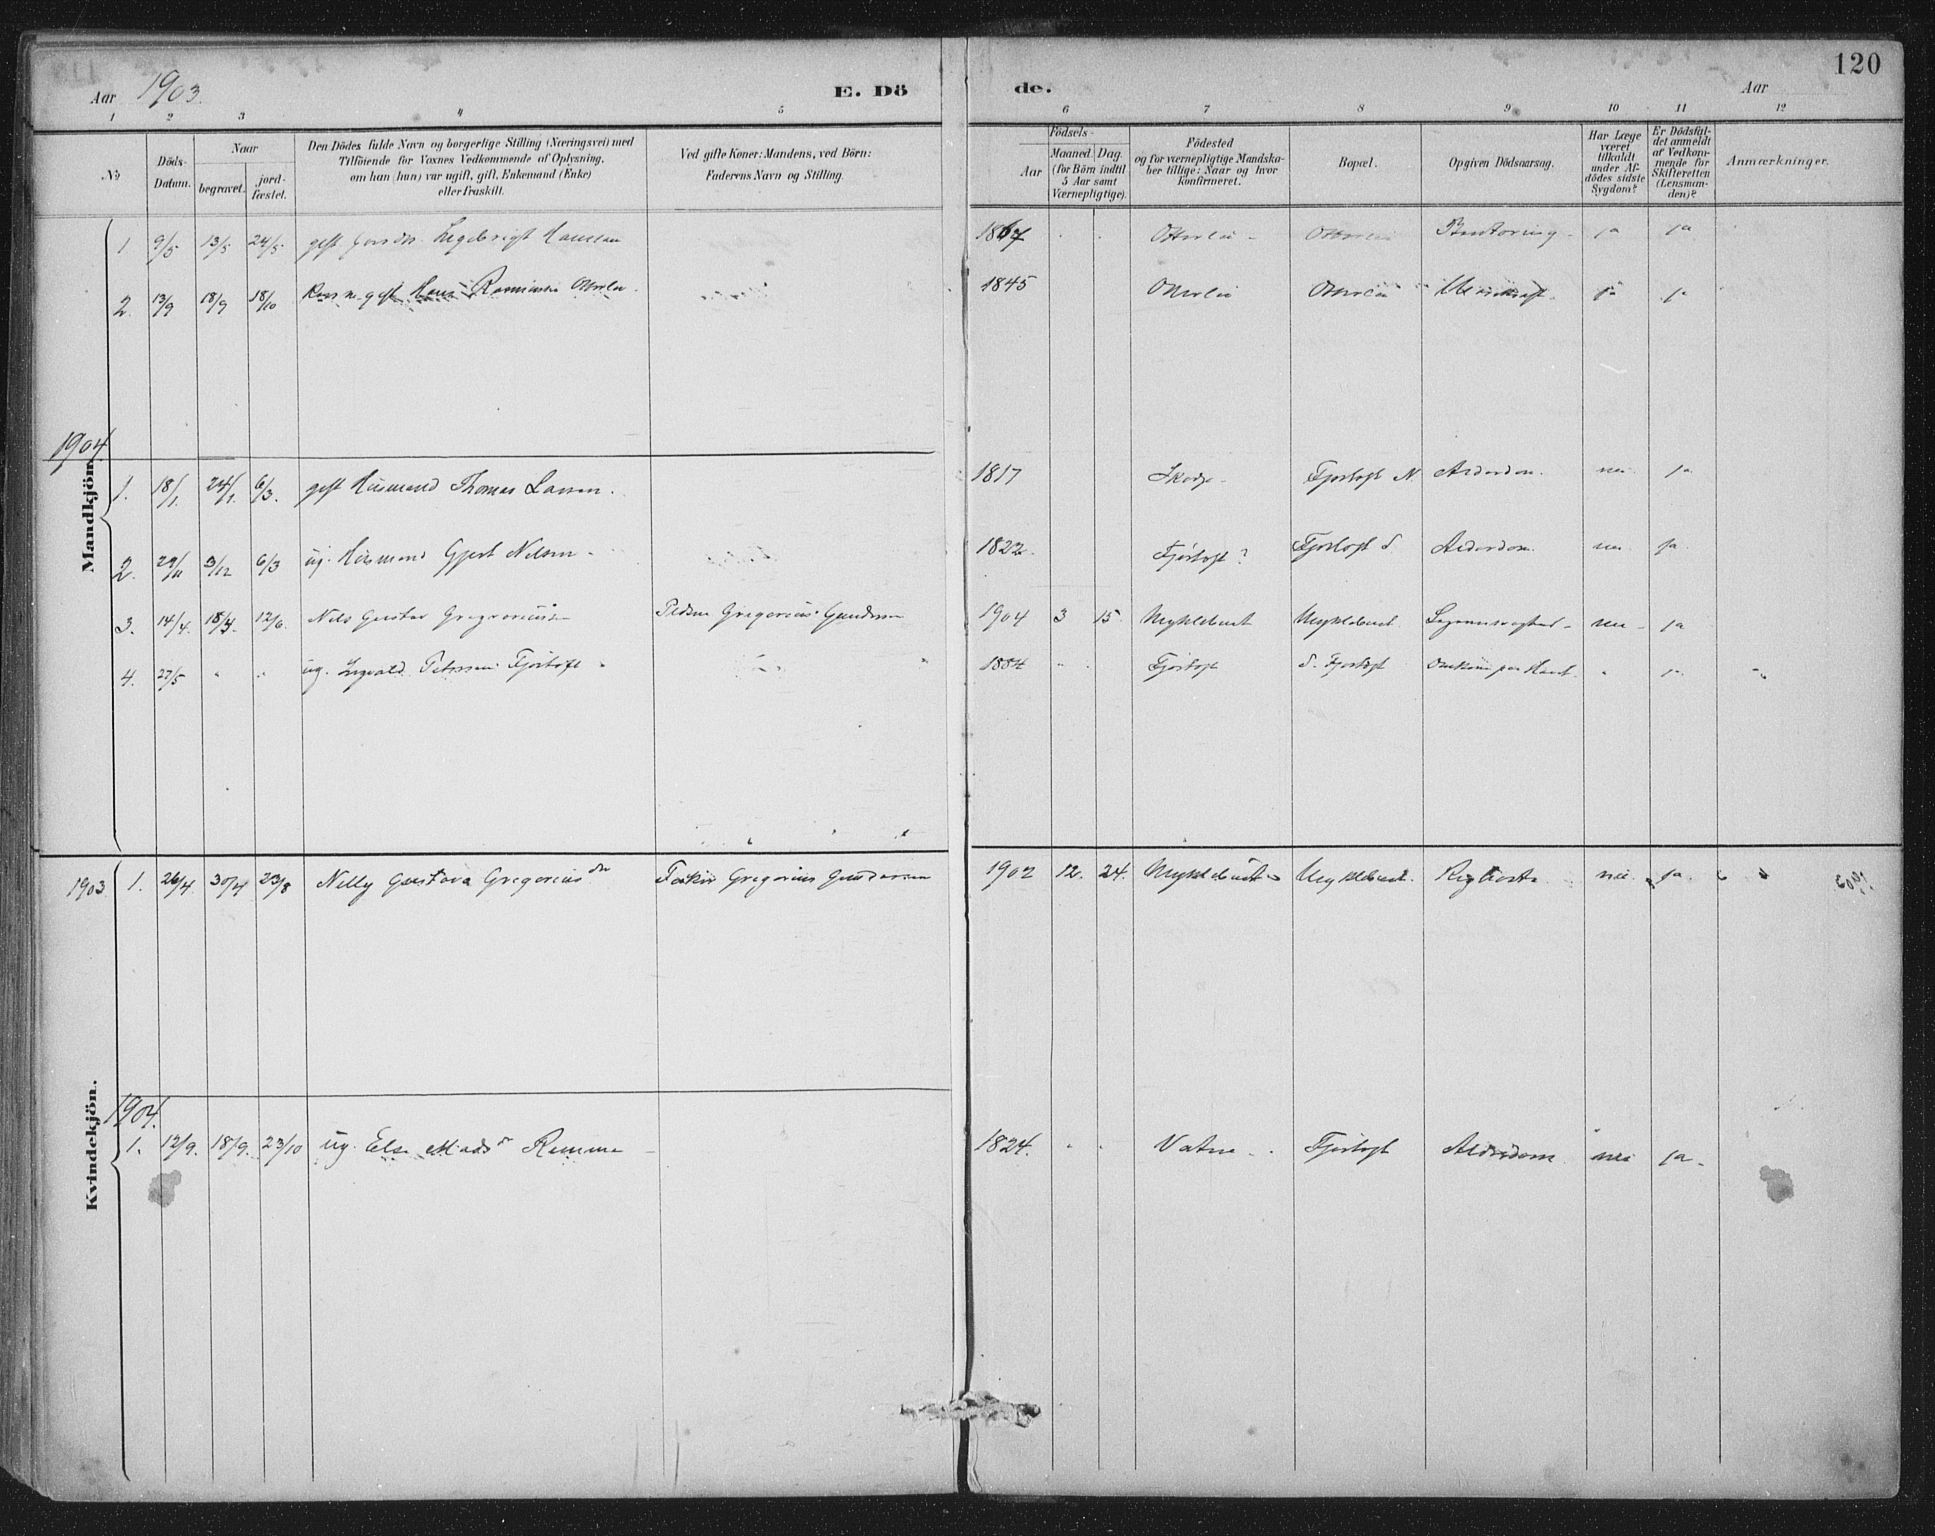 120
Aar 1903. E. Dö de. Aar
1 2 3 4 5 6 7 8 9 10 11 12
No
Döds-Datum.
Naar
begravet.
jord-fæstet.
Den Dödes fulde Navn og borgerlige Stilling (Næringsvei) med
Tilföiende for Voxnes Vedkommende af Oplysning,
om han (hun) var ugift, gift, Enkemand (Enke)
eller fraskilt.
Ved gifte Koner: Mandens, ved Börn:
Faderens Navn og Stilling.
Födsels-
Aar
Maaned. Dag.
(for Börn indtil
5 Aar samt
Værnepligtige).
Födested
og for værnepligtige Mandska-
ber tillige: Naar og hvor
konfirmeret.
Bopæl.
Opgiven Dödsaarsag.
Har Læge
været
tilkaldt
under Af-
dödes sidste
Sygdom?
Er Dödsfal-
det anmeldt
af Vedkom-
mende for
Skifteretten
(Lensman-
den)?
Anmærkninger.
Mandkjön.
1. 9/5 13/5 24/5 gift Hansen 1867 Otterlei Otterlei ja ja
2. 13/9 18/9 18/10 gift Hans Rasmussen Otterlei 1845 Otterlei Otterlei ja ja
1904
1. 18/1. 24/1. 6/3. gift Husmand Thomas Larsen. 1817 Skodje Fjørtoft N. Alderdom. nei ja
2. 29/11 3/12 6/3 ug. Husmand Gjert Nilsen 1822. Fjørtoft? Fjørtoft S. Alderdom. nei ja
3. 14/4. 18/4. 12/6. Nils Gustav Gregoriussen Gregorius Gundersen 1904 3 15. Myklebust Myklebust nei ja
4. 27/5 " " ug. Ingvald Peterssen Fjørtoft 1884 Fjørtoft S. Fjørtoft Omkom paa Havet " ja
Kvindekjön.
1903 1. 26/4. 30/4 23/8 Nelly Gustava Gregoriusdn Fisker Gregorius Gundersen 1902 12. 24. Myklebust Myklebust. nei ja
1904.
1. 12/9. 18/9. 23/10 ug. Else Madsd Remme 1824. Vatne Fjørtoft Alderdom nei ja